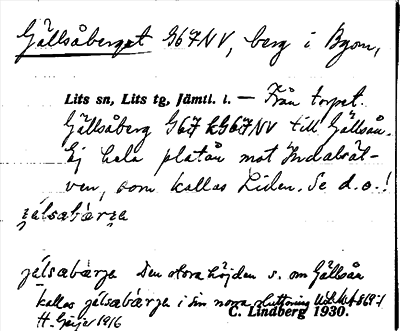 Gällsåberget G67NV, berg i Bygom,
Lits sn, Lits tg, Jämtl. l. — Från torpet
Gällsåberg G67 k G67NV till Gällsån.
Ej hela platån mot Indalsäl-
ven, som kallas Liden. Se d.o.!
jälsabärja
jälsabärja Den stora höjden s. om Gällsån
kallas jälsabärja i sin norra sluttning
H. Geijer 1916
C. Lindberg 1930.